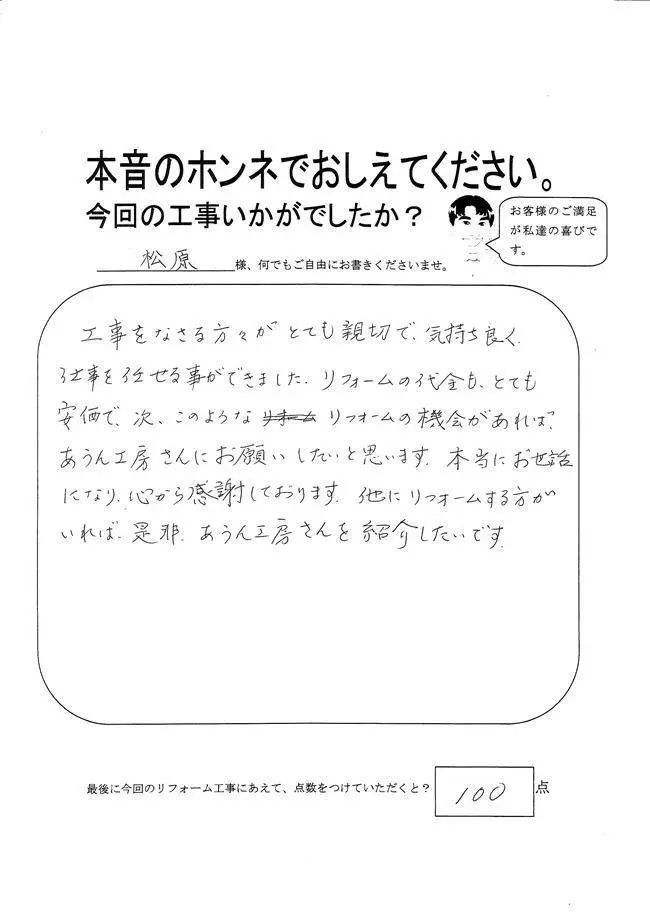 本音のホンネでおしえてください。
今回の工事いかがでしたか？
お客様のご満足
が私達の喜びで
す。
松原 様、何でもご自由にお書きくださいませ。
工事をなさる方々が とても親切で、気持ち良く、
仕事を任せる事ができました。リフォームの代金も、とても
安価で、次、このような リフォームの機会があれば、
あうん工房さんにお願いしたいと思います。本当にお世話
になり、心から感謝しております。他にリフォームする方が
いれば、是非、あうん工房さんを紹介したいです。
最後に今回のリフォーム工事にあえて、点数をつけていただくと？ 100 点